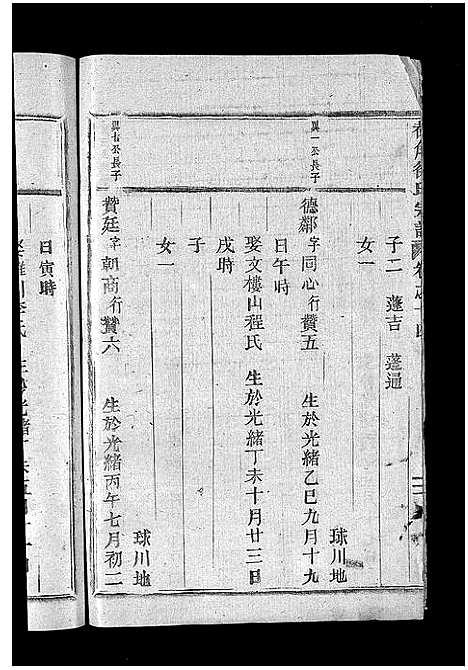 氏宗譜
子二 蓬吉 蓬通
女一
球川地
異一公長子
德鄰字同心行贊五 生於光緒乙巳九月十九
日午時
娶文樓山程氏 生於光緒丁未十月廿三日
戌時
子
女一
球川地
異七公長子
贊廷字朝商行贊六 生於光緒丙午七月初二
日寅時